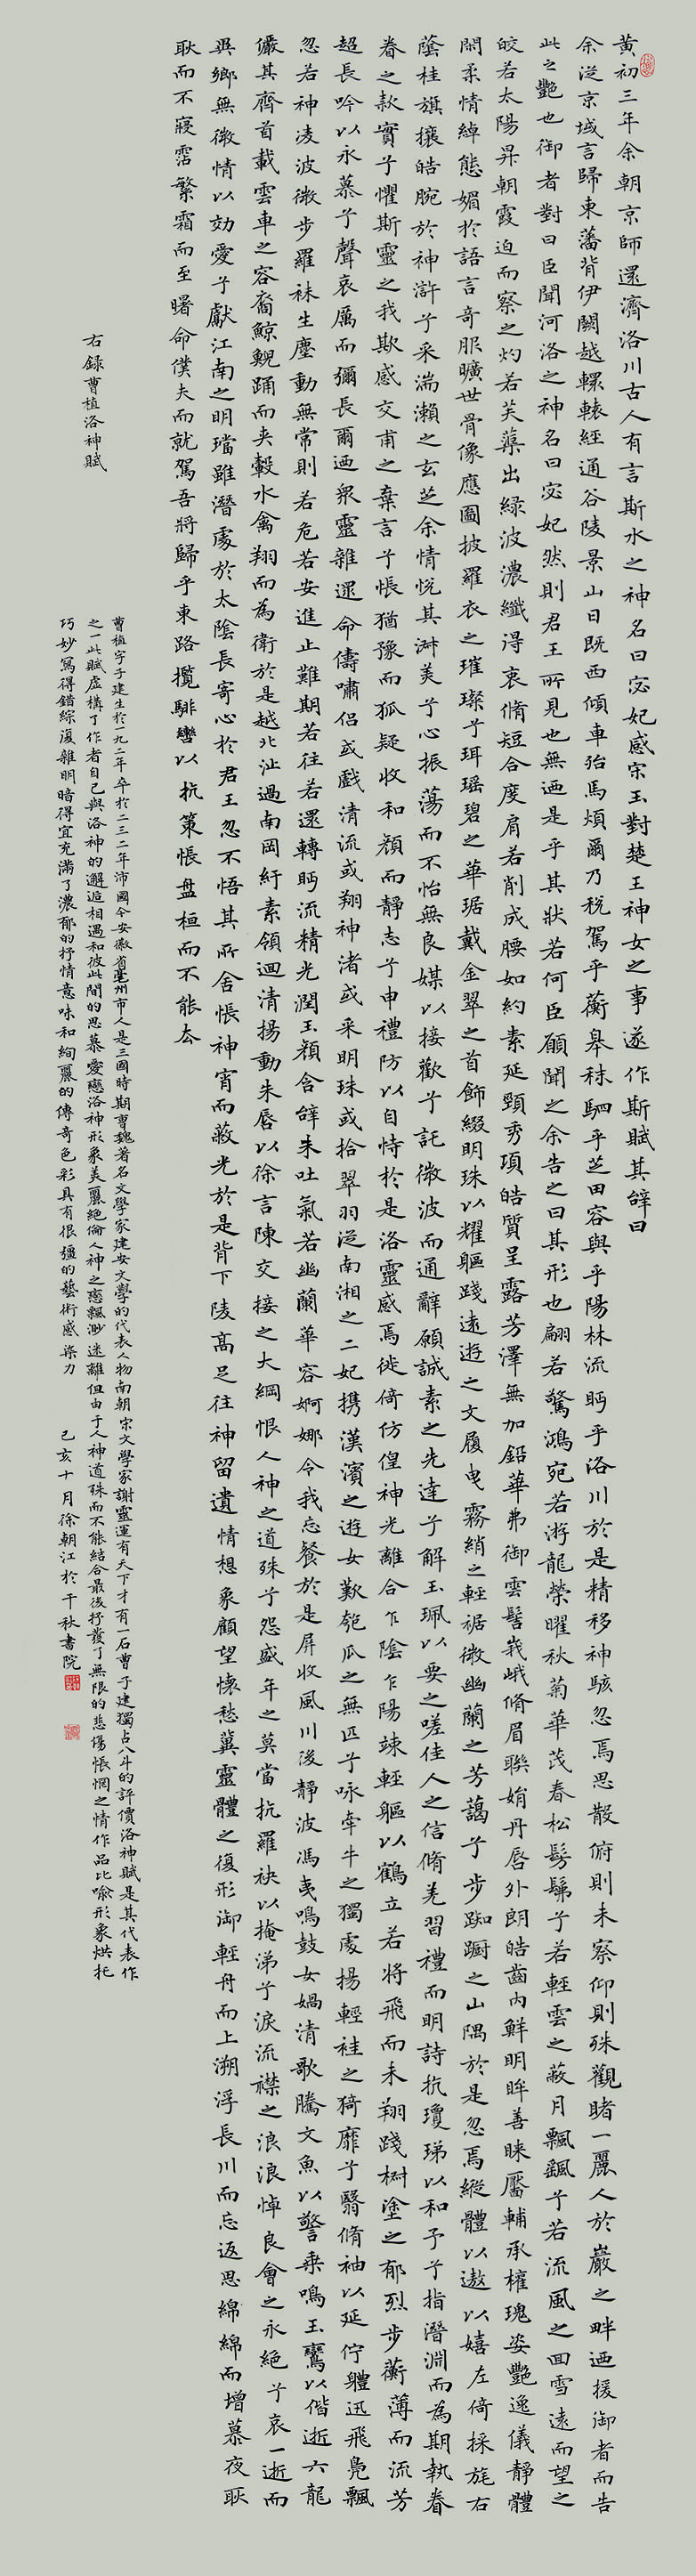 黃初三年余朝京師還濟洛川古人有言斯水之神名曰宓妃感宋玉對楚王神女之事遂作斯賦其辭曰
余從京域言歸東藩背伊闕越轘轅經通谷陵景山日既西傾車殆馬煩爾乃稅駕乎蘅皋秣駟乎芝田容與乎陽林流眄乎洛川於是精移神駭忽焉思散俯則未察仰則殊觀睹一麗人於巖之畔迺援御者而告
此之艷也御者對曰臣聞河洛之神名曰宓妃然則君王所見也無迺是乎其狀若何臣願聞之余告之曰其形也翩若驚鴻宛若游龍榮曜秋菊華茂春松髣髴兮若輕雲之蔽月飄颻兮若流風之回雪遠而望之
皎若太陽昇朝霞迫而察之灼若芙蕖出綠波濃纖得衷脩短合度肩若削成腰如約素延頸秀項皓質呈露芳澤無加鉛華弗御雲髻峩峨脩眉聯娟丹唇外朗皓齒內鮮明眸善睞靨輔承權瑰姿艷逸儀靜體
閑柔情綽態媚於語言奇服曠世骨像應圖披羅衣之璀璨兮珥瑶碧之華琚戴金翠之首飾綴明珠以耀軀踐遠遊之文履曳霧綃之輕裾微幽蘭之芳藹兮步踟躕之山隅於是忽焉縱體以遨以嬉左倚採旄右
蔭桂旗攘皓腕於神滸兮采湍瀨之玄芝余情悅其淑美兮心振蕩而不怡無良媒以接歡兮託微波而通辭願誠素之先達兮解玉珮以要之嗟佳人之信脩羌習禮而明詩抗瓊珶以和予兮指潛淵而為期執眷
眷之款實兮懼斯靈之我欺感交甫之棄言兮悵猶豫而狐疑收和顏而靜志兮申禮防以自恃於是洛靈感焉徙倚仿偟神光離合乍陰乍陽竦輕軀以鶴立若將飛而未翔踐椒塗之郁烈步蘅薄而流芳
超長吟以永慕兮聲哀厲而彌長爾迺衆靈雜遝命儔嘯侶或戲清流或翔神渚或采明珠或拾翠羽從南湘之二妃携漢濱之遊女歎匏瓜之無匹兮咏牽牛之獨處揚輕袿之猗靡兮翳脩袖以延佇體迅飛鳧飄
忽若神凌波微步羅袜生塵動無常則若危若安進止難期若往若還轉眄流精光潤玉顏含辭未吐氣若幽蘭華容婀娜令我忘餐於是屏收風川後靜波馮夷鳴鼓女媧清歌騰文魚以警乘鳴玉鸞以偕逝六龍
儼其齊首載雲車之容裔鯨鯢踊而夹轂水禽翔而為衛於是越北沚過南岡紆素領迴清揚動朱唇以徐言陳交接之大綱恨人神之道殊兮怨盛年之莫當抗羅袂以掩涕兮淚流襟之浪浪悼良會之永絕兮哀一逝而
異鄉無微情以効愛兮獻江南之明璫雖潛處於太陰長寄心於君王忽不悟其所舍悵神宵而蔽光於是背下陵高足往神留遺情想象顧望懷愁冀靈體之復形御輕舟而上溯浮長川而忘返思綿綿而增慕夜耿
耿而不寢霑繁霜而至曙命僕夫而就駕吾將歸乎東路攬騑轡以抗策悵盘桓而不能去
右録曹植洛神賦
曹植字子建生於一九二年卒於二三二年沛國今安徽省亳州市人是三國時期曹魏著名文學家建安文學的代表人物南朝宋文學家謝靈運有天下才有一石曹子建獨占八斗的評價洛神賦是其代表作
之一此賦虛構了作者自己與洛神的邂逅相遇和彼此間的思慕愛戀洛神形象美麗絕倫人神之戀飄渺迷離但由于人神道殊而不能結合最後抒發了無限的悲傷悵惘之情作品比喻形象烘托
巧妙寫得錯綜復雜明暗得宜充滿了濃郁的抒情意味和絢麗的傳奇色彩具有很強的藝術感染力 己亥十月徐朝江於千秋書院